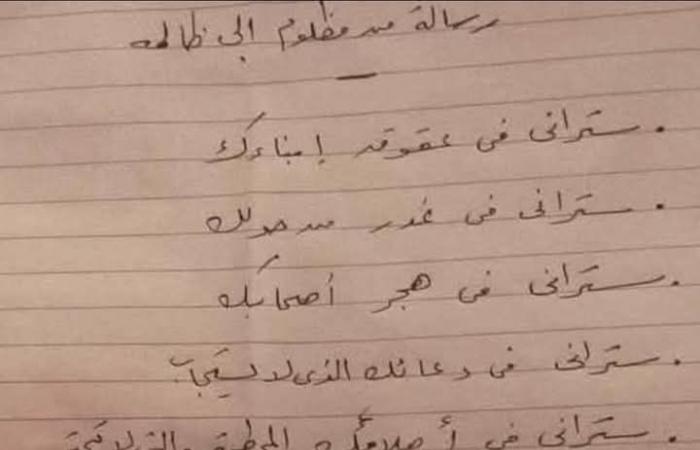 رسالة من مظلوم الى ظالمه
. ستراني في عقوق إبناءك
. ستراني في غدر من حولك
. ستراني في هجر أصحابك
. ستراني في دعائك الذي لا يستجاب
. ستراني في أحلامك